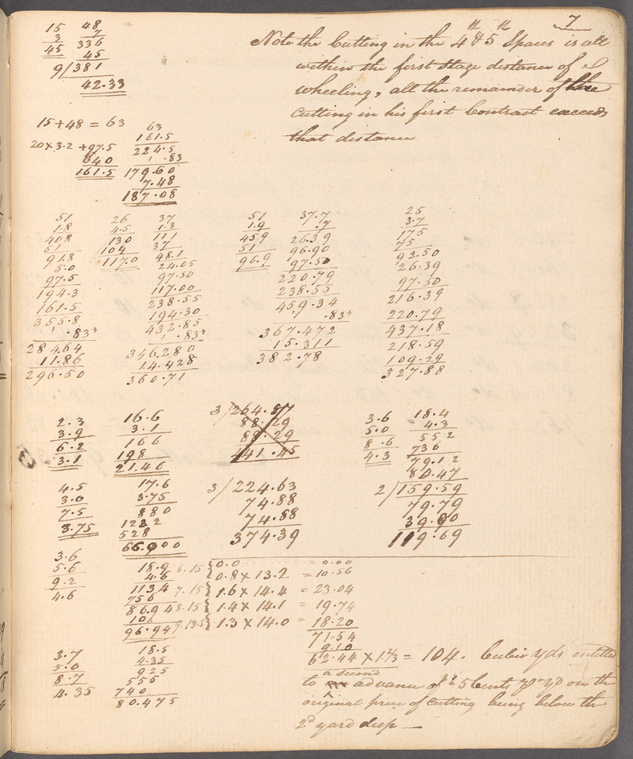 7
15 48
3 7
45 336
45
9/381
42.33
Note the Cutting in the 4th & 5th Spaces is all
within the first stage distance of
wheeling, all the remainder of the
Cutting in his first Contract exceeds
that distance
15+48 = 63 63
161.5
20x3.2 +97.5 224.5
640 .83
161.5 179.60
7.48
187.08
51 26 37
1.8 4.5 1.3
408 130 111
51 104 37
91.8 117.0 48.1
5.0 24.05
97.5 97.50
194.3 117.00
161.5 238.55
355.8 194.30
.83+ 432.85
28464 .83+
11.86 346.280
296.50 14.428
360.71
51 37.7
1.9 .7
459 26.39
51 96.90
96.9 97.50
220.79
238.55
459.34
.83+
367.472
15.311
382.78
25
3.7
175
75
92.50
26.39
97.50
216.39
220.79
437.18
218.59
109.29
327.88
2.3 16.6
3.9 3.1
6.2 166
3.1 498
21.46
3/264.87
88.29
88.29
441.45
3.6 18.4
5.0 4.3
8.6 552
4.3 736
79.12
80.47
4.5 17.6
3.0 3.75
7.5 880
3.75 1232
528
66.000
3/224.63
74.88
74.88
374.39
2/159.59
79.79
39.90
119.69
3.6
5.6 18.9
9.2 4.6
4.6 1134
756
86.94
96.94
6.15 {0.0 = 0.00
0.8 x 13.2 = 10.56
7.15 {1.6 x 14.4 = 23.04
8.15 {1.4 x 14.1 = 19.74
9.13.5 {1.3 x 14.0 = 18.20
71.54
9.10
62.44 x 1 2/3 = 104. Cubic Yds entitled
a second
to advance of 5 Cents pr yd on the
original price of cutting being below the
2d yard deep —
3.7 18.5
5.0 4.35
8.7 925
4.35 555
740
80.475